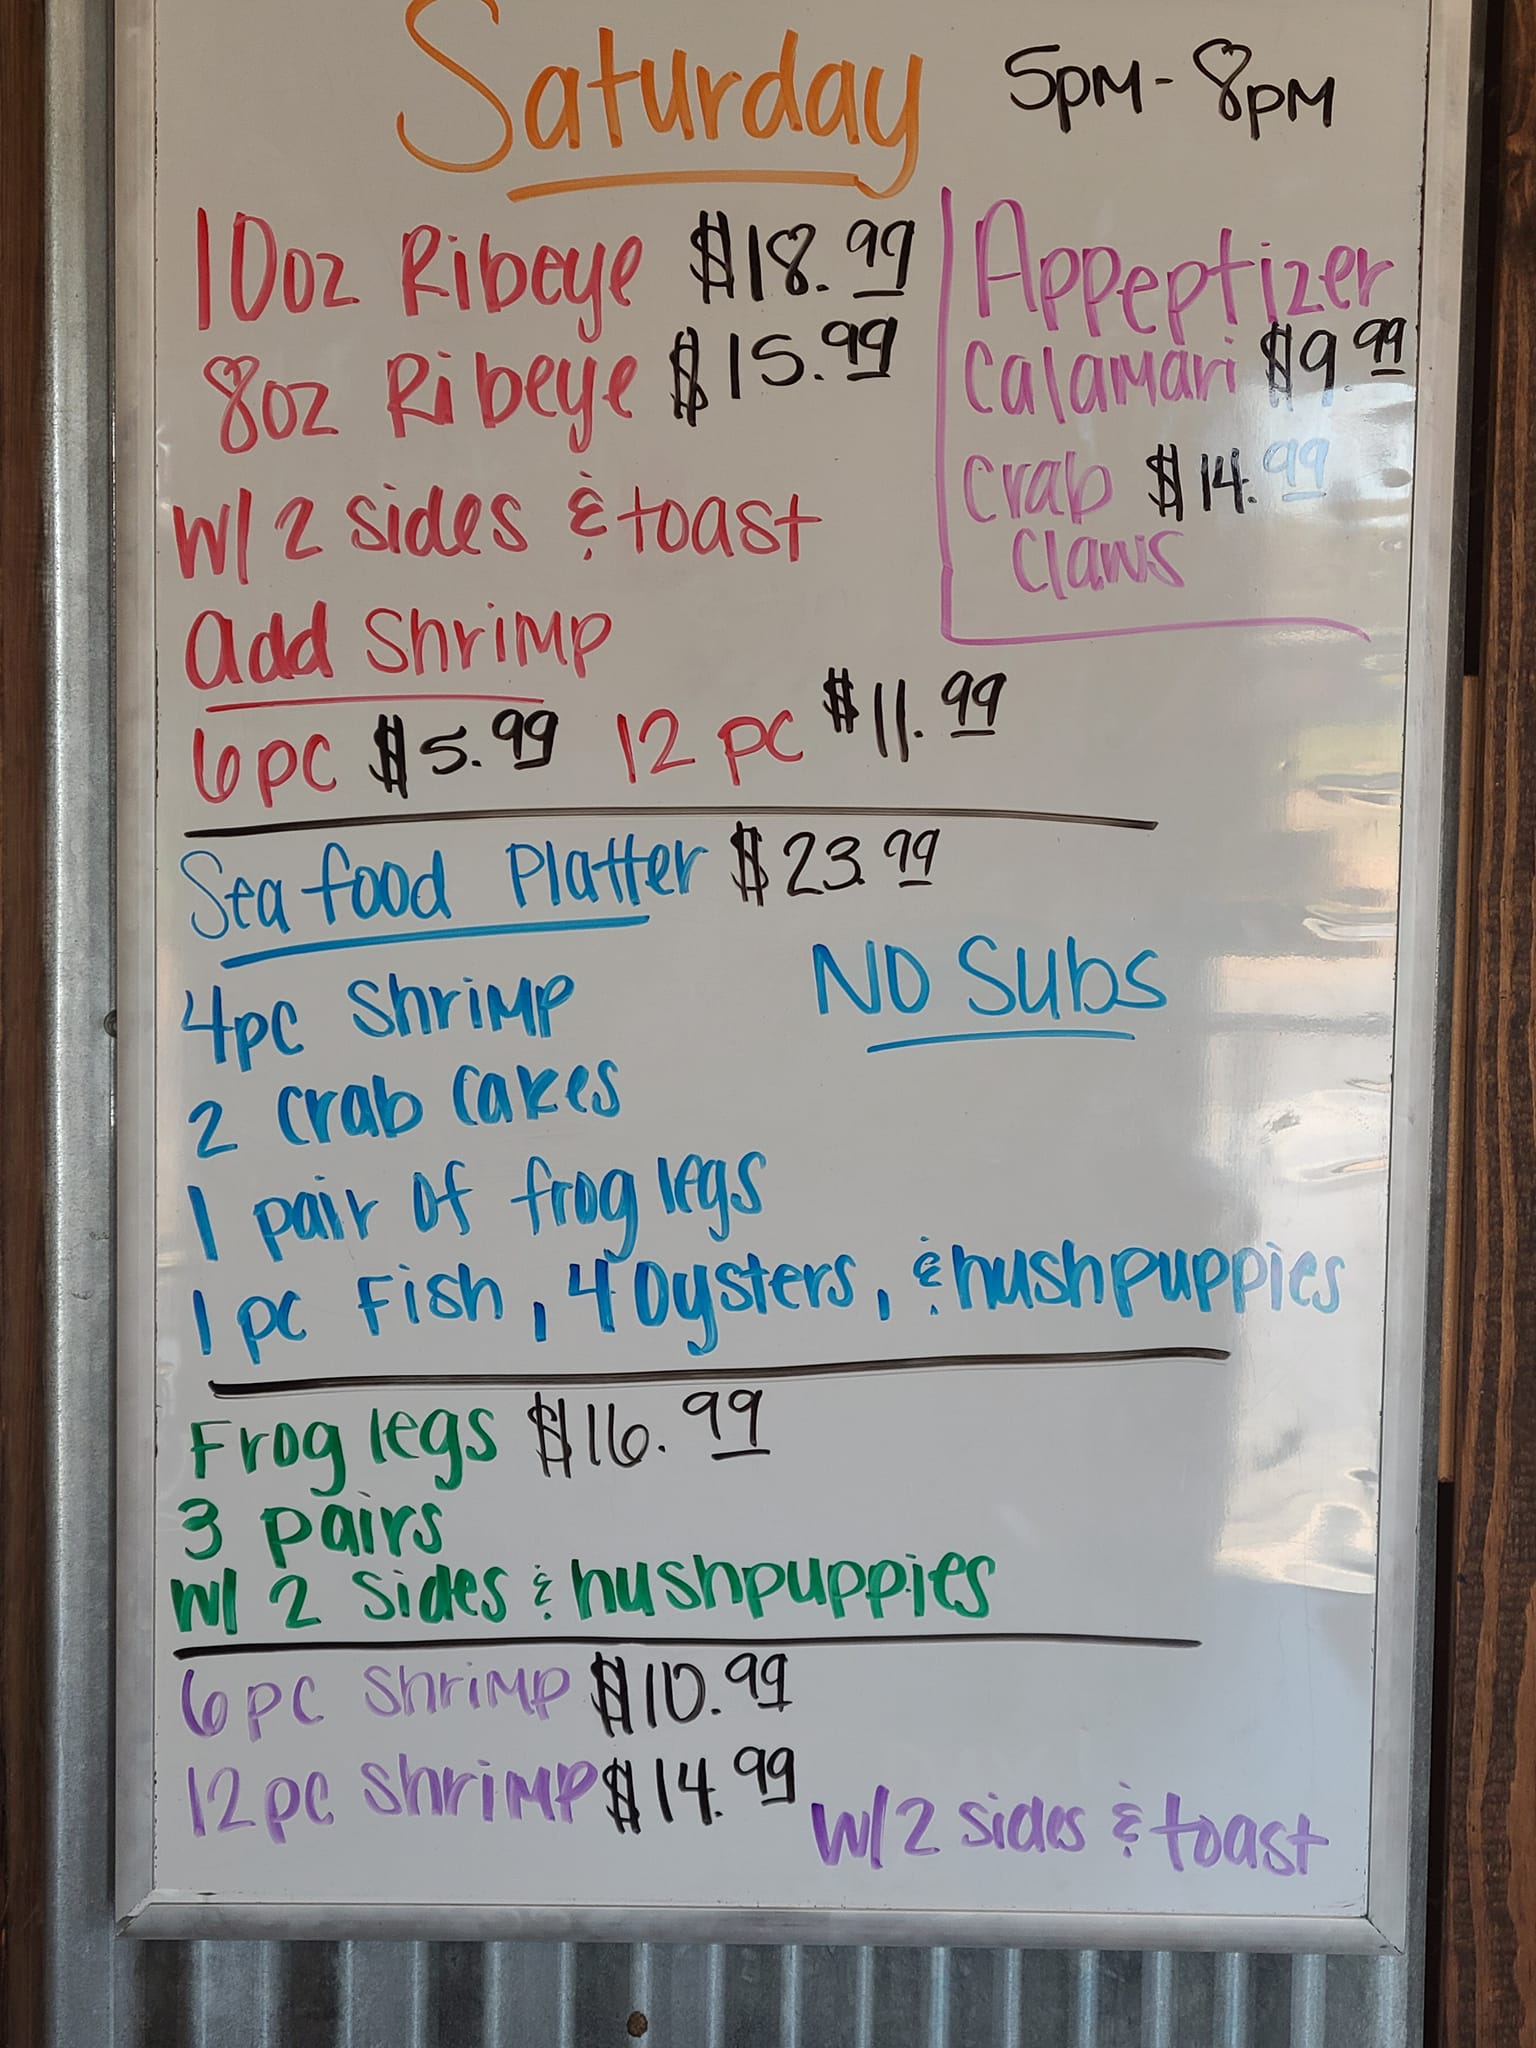 Saturday 5PM - 8PM
10oz Ribeye $18.99
8oz Ribeye $15.99
w/ 2 sides & toast
add shrimp
6pc $5.99 12 pc $11.99
Appeptizer
Calamari $9.99
Crab $14.99
Claws
Seafood Platter $23.99
NO Subs
4pc shrimp
2 crab cakes
1 pair of frog legs
1 pc Fish, 4 oysters, & hushpuppies
Frog legs $16.99
3 pairs
w/ 2 sides & hushpuppies
6pc shrimp $10.99
12pc shrimp $14.99
w/ 2 sides & toast